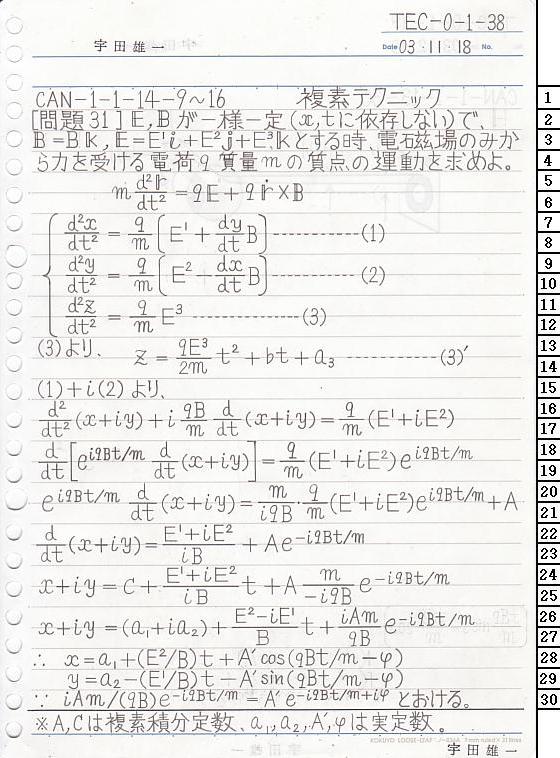 TEC-0-1-38
宇田雄一
Date 03・11・18 No.
CAN-1-1-14-9～16 複素テクニック
[問題31] 𝔼,𝔹が一様一定(x,tに依存しない)で、
𝔹=B𝕜, 𝔼=E¹𝕚+E²𝕛+E³𝕜とする時、電磁場のみか
ら力を受ける電荷q質量mの質点の運動を求めよ。
m d²𝕣/dt² = q𝔼 + q𝕣̇×𝔹
d²x/dt² = q/m [E¹ + dy/dt B] ------------(1)
d²y/dt² = q/m [E² - dx/dt B] ------------(2)
d²z/dt² = q/m E³ ---------------(3)
(3)より、 z = qE³/2m t² + bt + a₃ ------------(3)′
(1)+i(2)より、
d²/dt² (x+iy) + i qB/m d/dt (x+iy) = q/m (E¹+iE²)
d/dt [e^{iqBt/m} d/dt (x+iy)] = q/m (E¹+iE²)e^{iqBt/m}
e^{iqBt/m} d/dt (x+iy) = m/iqB · q/m (E¹+iE²)e^{iqBt/m} + A
d/dt (x+iy) = E¹+iE²/iB + Ae^{-iqBt/m}
x+iy = C + E¹+iE²/iB t + A m/-iqB e^{-iqBt/m}
x+iy = (a₁+ia₂) + E²-iE¹/B t + iAm/qB e^{-iqBt/m}
∴ x=a₁+(E²/B)t+A′cos(qBt/m-φ)
y=a₂-(E¹/B)t-A′sin(qBt/m-φ)
∵ iAm/(qB)e^{-iqBt/m}=A′e^{-iqBt/m+iφ} とおける。
※A,Cは複素積分定数、a₁,a₂,A′,φは実定数。
宇田雄一
1
2
3
4
5
6
7
8
9
10
11
12
13
14
15
16
17
18
19
20
21
22
23
24
25
26
27
28
29
30